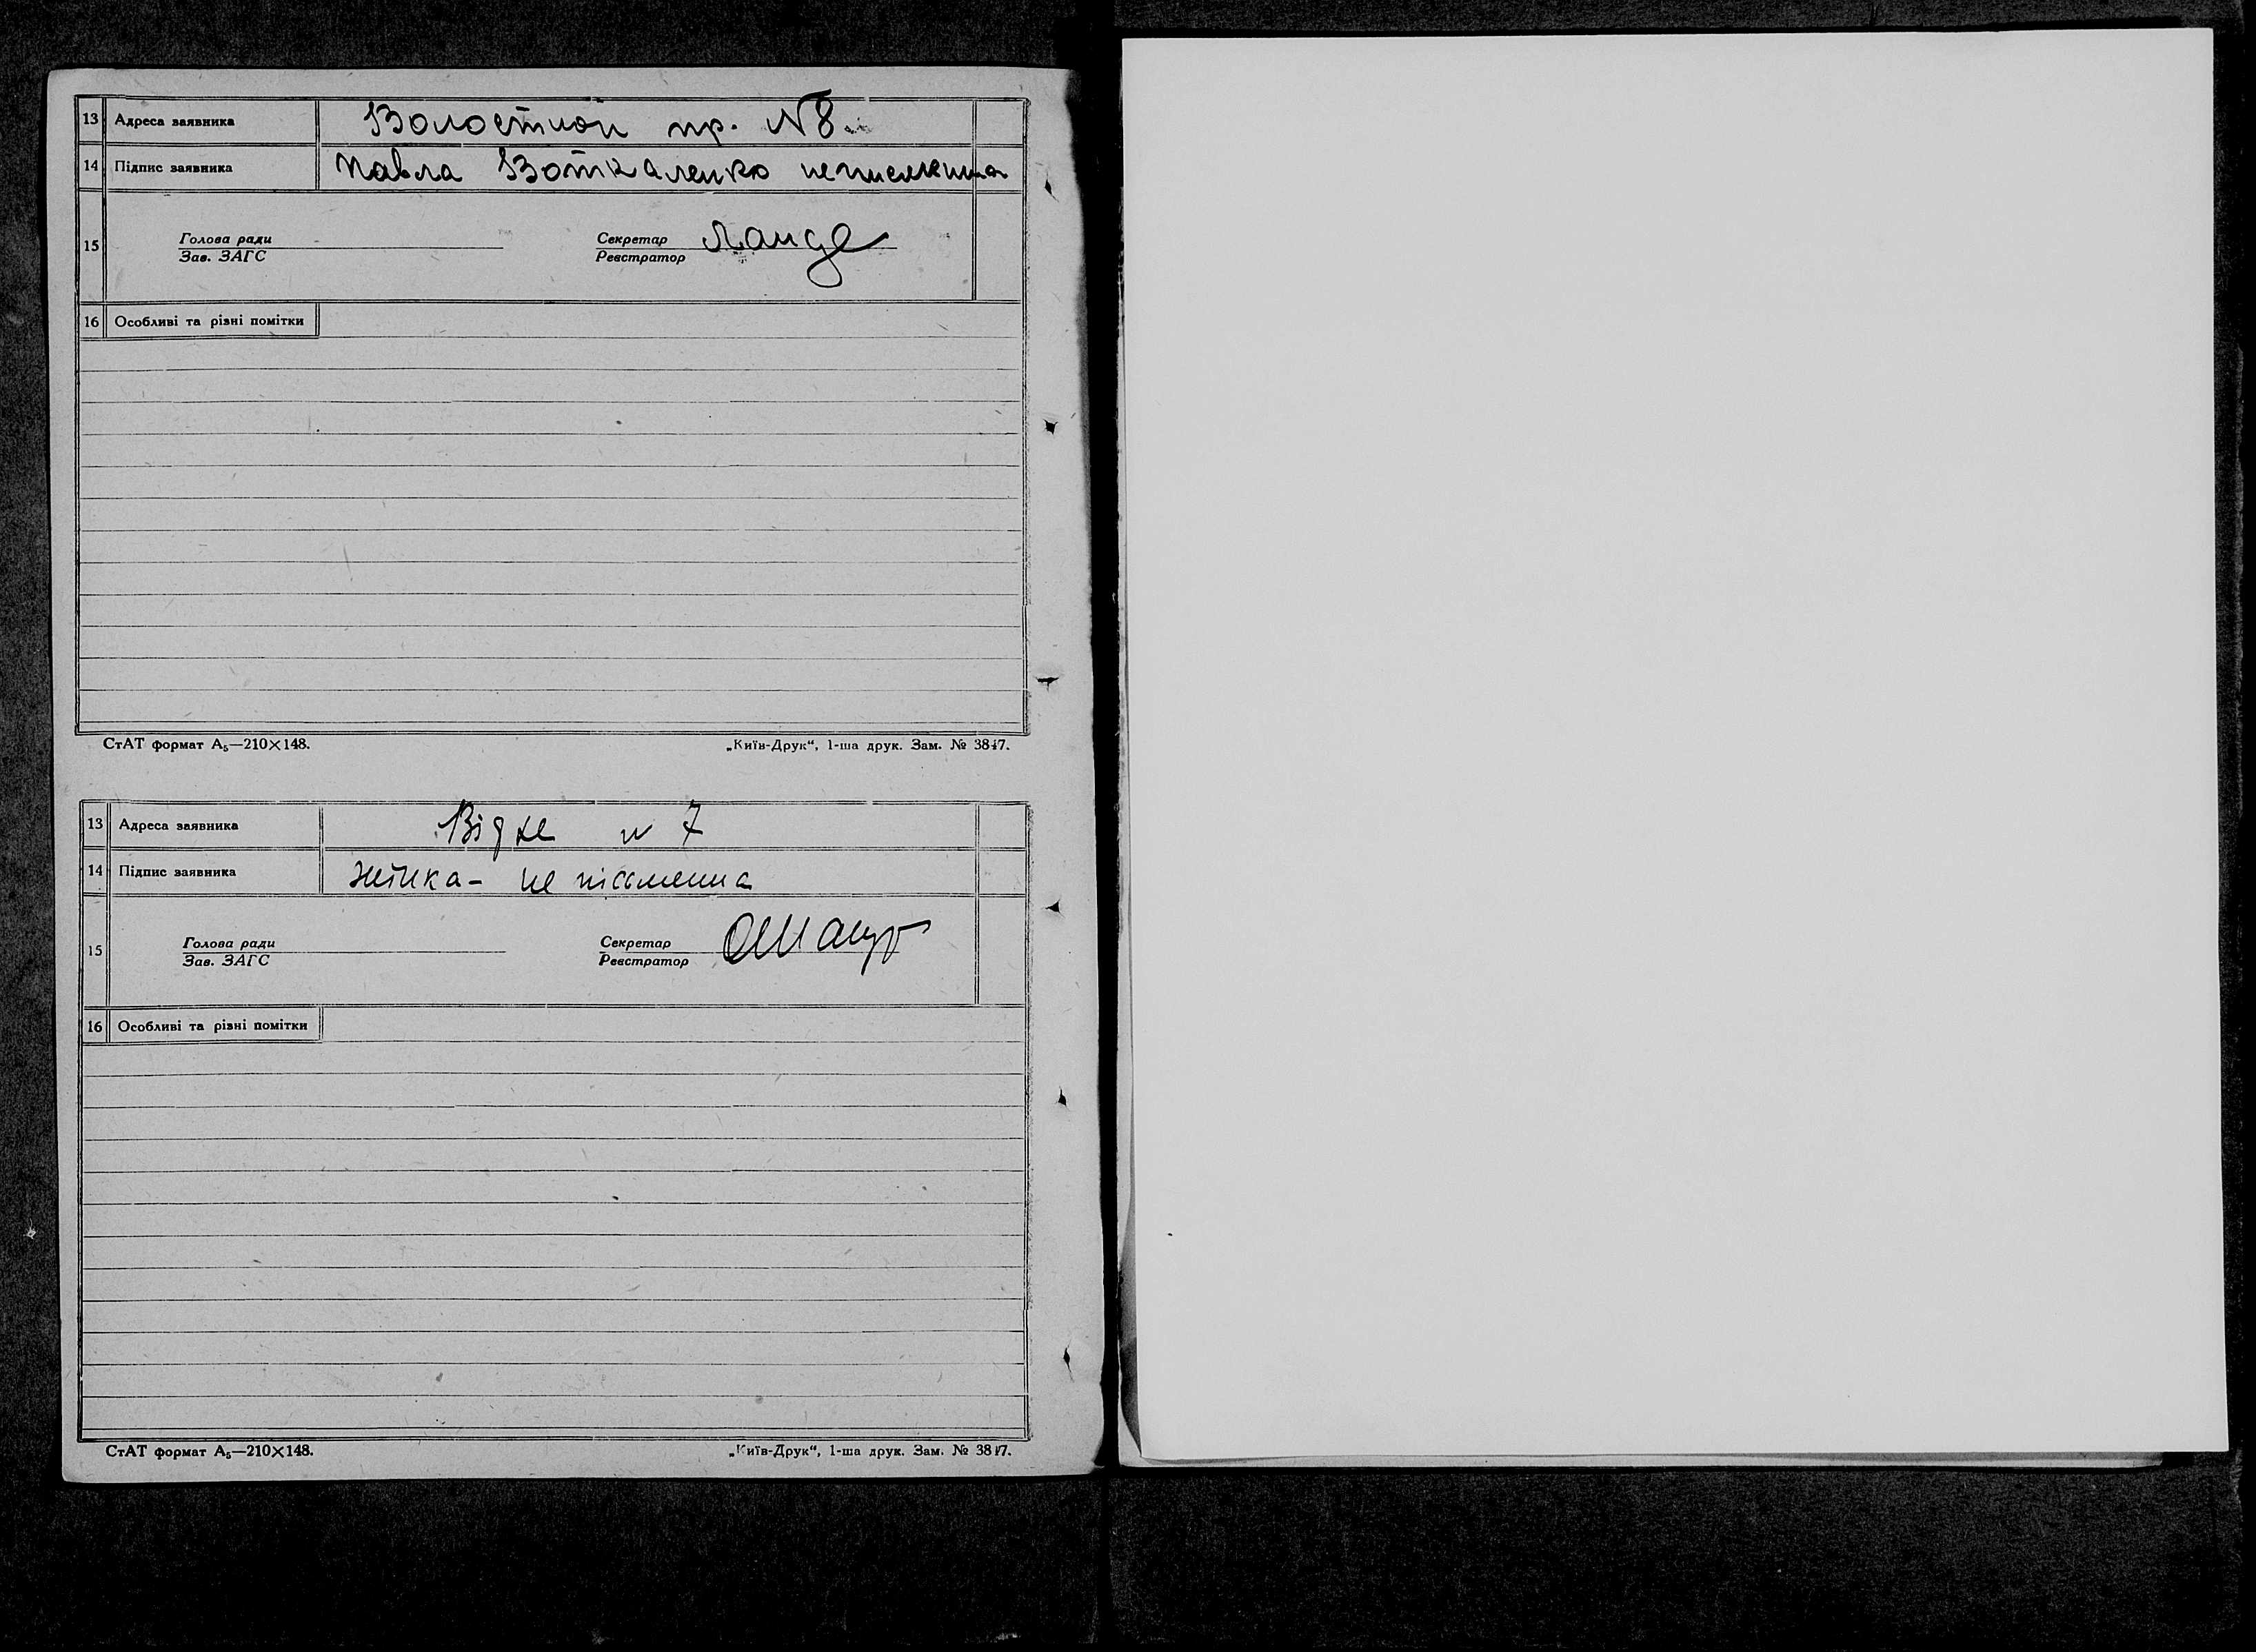 13 Адреса заявника Волостной пр. №8.
14 Підпис заявника Павла
15 Голова ради Секретар Ланде
Зав. ЗАГС Реєстратор
16 Особливі та різні помітки
СтАТ формат А₅—210×148. „Київ-Друк“, 1-ша друк. Зам. № 3847.
13 Адреса заявника 7
14 Підпис заявника жінка - не письменна
15 Голова ради Секретар
Зав. ЗАГС Реєстратор
16 Особливі та різні помітки
СтАТ формат А₅—210×148. „Київ-Друк“, 1-ша друк. Зам. № 3847.